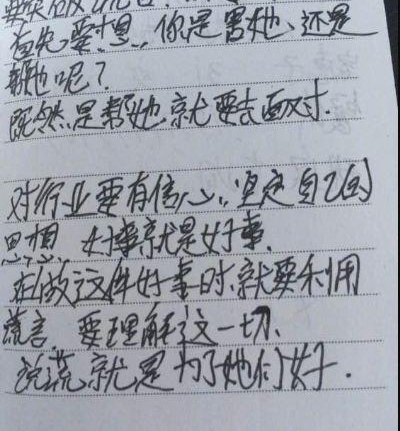 首先要想,你是害她,还是
帮她呢?
既然是帮她就要去面对.
对行业要有信心,坚定自己的
思想,好事就是好事.
在做这件好事时,就要利用
谎言,要理解这一切.
说谎就是为了她们好.